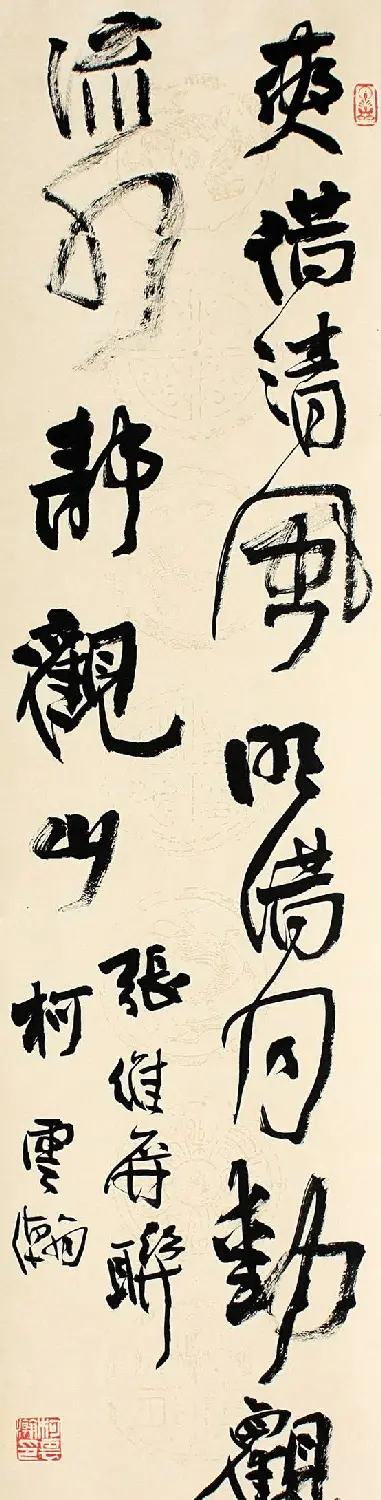 爽借清風明借月動觀
流水静觀山
張維屏聯
柯雲瀚
柯雲瀚印